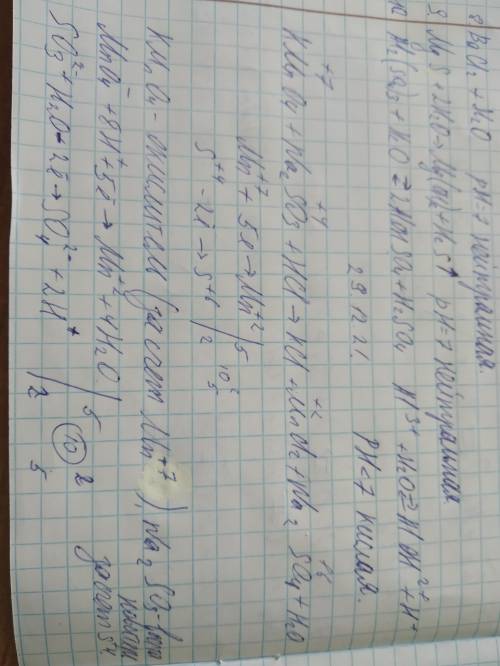 8 BaCl₂ + H₂O pH=7 нейтральная
9. MgS + H₂O → Mg(OH)₂ + H₂S↑ pH=7 нейтральная
10 Al₂(SO₄)₃ + H₂O ⇄ 2AlOHSO₄ + H₂SO₄ Al³⁺ + H₂O ⇄ AlOH²⁺ + H⁺
pH<7 кислая.
29.12.21
+7 +4 +2 +6
KMnO₄ + Na₂SO₃ + HCl → KCl + MnCl₂ + Na₂SO₄ + H₂O
Mn⁺⁷ + 5e → Mn⁺² | 5 10 2
S⁺⁴ - 2e → S⁺⁶ | 2 5
KMnO₄ - окислитель (за счет Mn⁺⁷), Na₂SO₃
за счет S⁺⁴
MnO₄⁻ + 8H⁺ + 5e → Mn⁺² + 4H₂O | 5 10 2
SO₃²⁻ + H₂O - 2e → SO₄²⁻ + 2H⁺ | 2 5